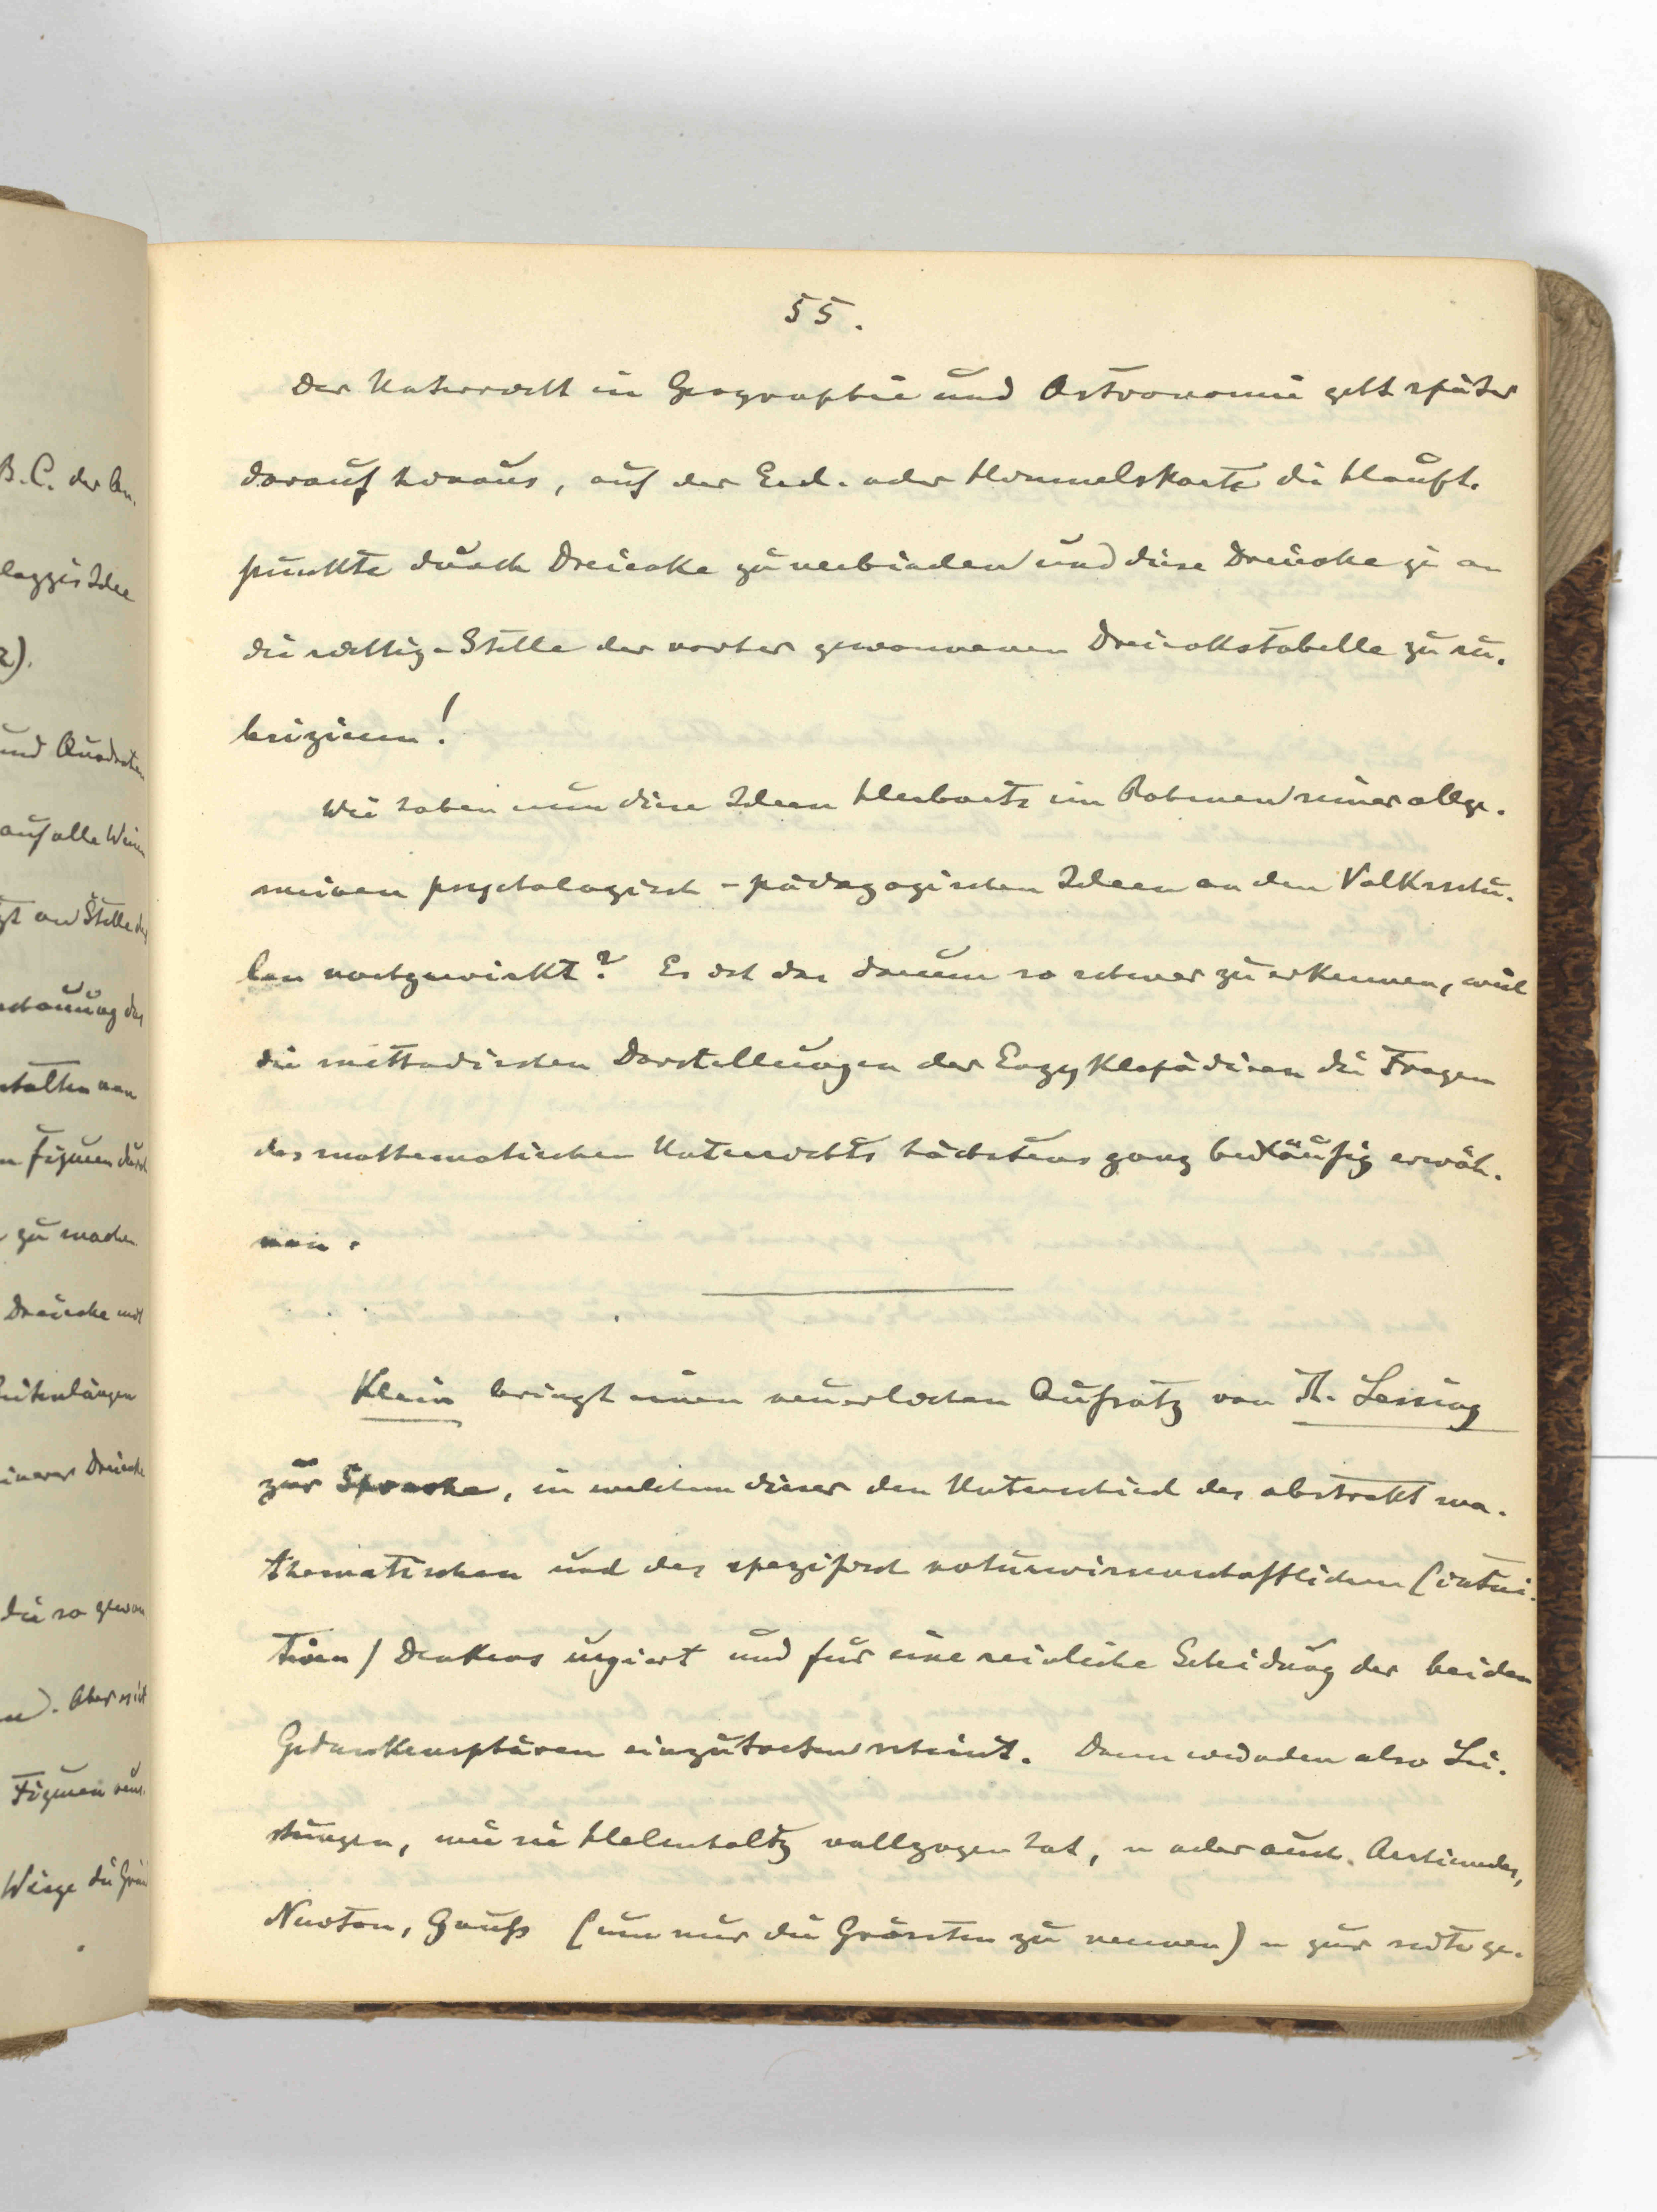 B. C. der An-
loggis Idee
2).
und Quadraten
auf alle Weisen
an Stelle des
schauung des
stalten von
Figuren durch
zu machen
Dreiecke mit
Seitenlängen
Dreiecke
die so gewon
n). Aber nicht
Figuren
Wiege die
55.
Der Unterricht in Geographie und Astronomie geht später
darauf hinaus, auf der Erd- oder Himmelskarte die Haupt-
punkte durch Dreiecke zu verbinden und diese Dreiecke je an
die richtige Stelle der vorher gewonnenen Dreieckstabelle zu ru-
brizieren!
Wie haben nun diese Ideen Herbarts im Rahmen seiner allge-
meinen psychologisch-pädagogischen Ideen an den Volksschu-
len nachgewirkt? Es ist das darum so schwer zu erkennen, weil
die methodischen Darstellungen der Enzyklopädieen die Fragen
des mathematischen Unterrichts höchstens ganz beiläufig erwäh-
nen.
Klein bringt einen neuerlichen Aufsatz von Th. Lessing
zur Sprache, in welchem dieser den Unterschied des abstrakt ma-
thematischen und des spezifisch naturwissenschaftlichen (intui-
tiven) Denkens urgiert und für eine reinliche Scheidung der beiden
Gedankensphären einzutreten scheint. Dann würden also Lei-
stungen, wie sie Helmholtz vollzogen hat, – oder auch Archimedes,
Newton, Gauß (um nur die Grössten zu nennen) – zur Seite ge-